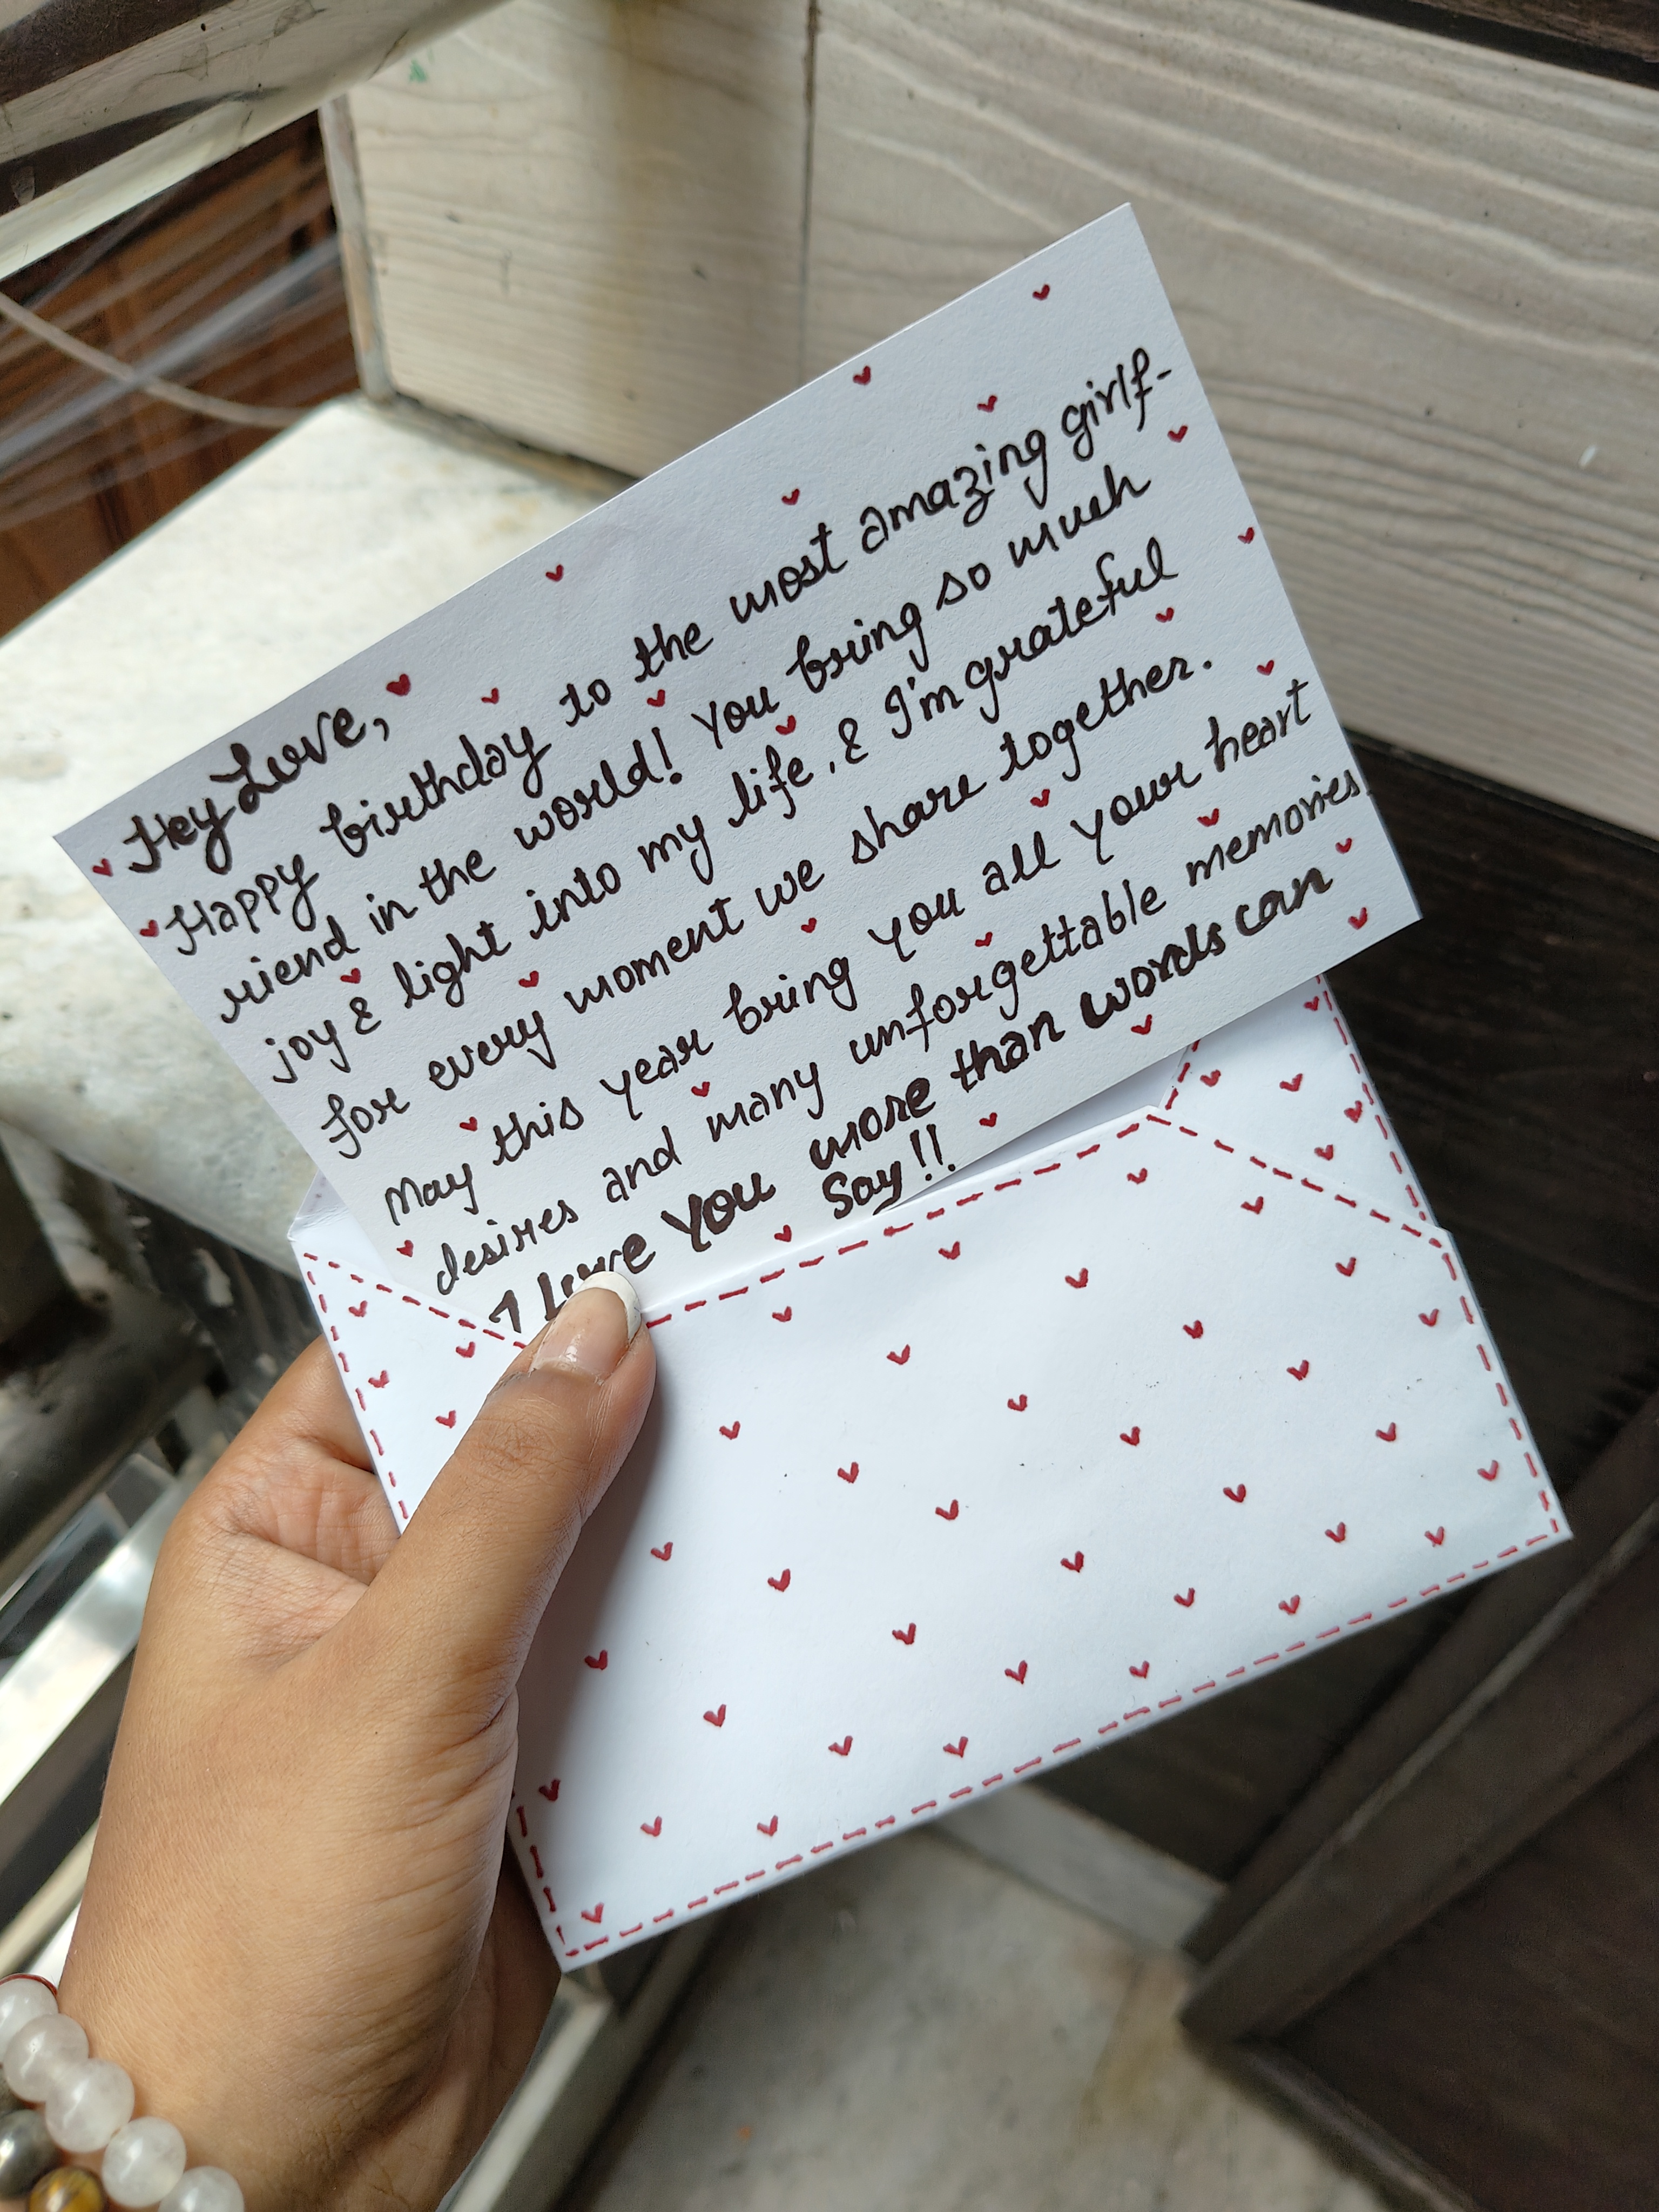 Hey Love,
Happy birthday to the most amazing girlf-
riend in the world! You bring so much
joy & light into my life, & I'm grateful
for every moment we share together.
May this year bring you all your heart
desires and many unforgettable memories.
I love you more than words can
Say!!